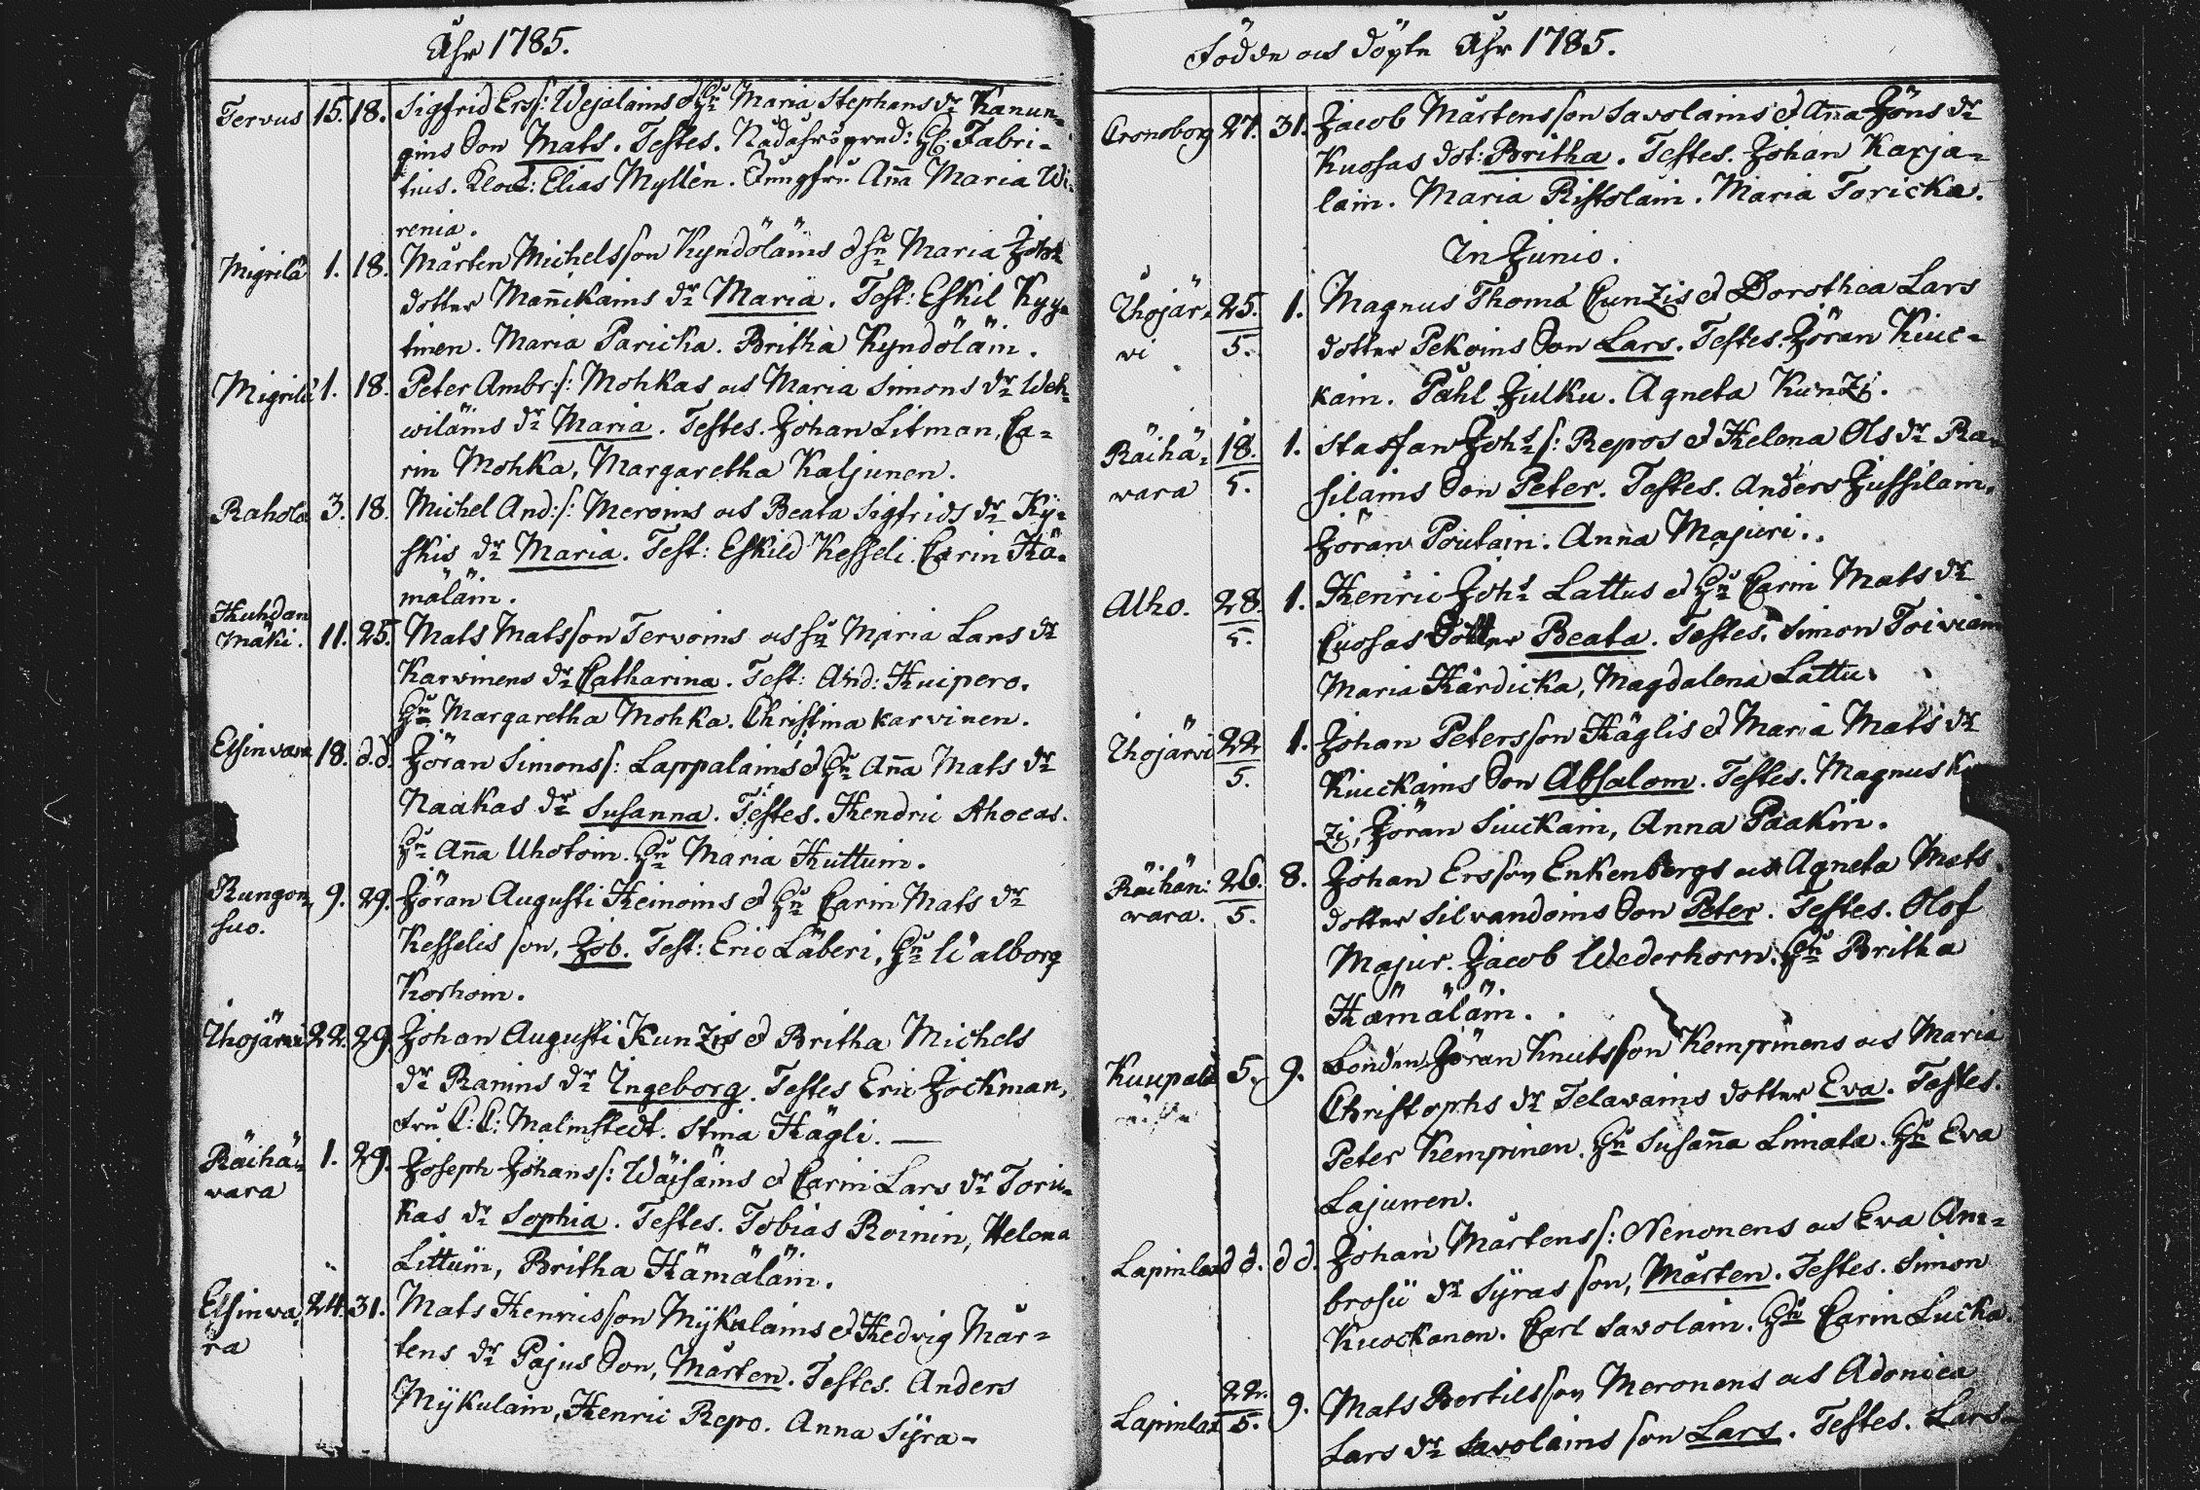 Åhr 1785.
Tervus 15. 18. Sigfrid Ers∫: Wejalains & Hu Maria Stephans dr Kanun-
gins Son Mats. Testes. Rådåhrspred: H. Fabri-
tius. Klock: Elias Myllén. Jungfru Aña Maria Wi-
renia.
Migrilä 1. 18. Mårten Michelsson Kyndöläins & Hu Maria Joh:
dotter Mañikains dr Maria. Test: Eskil Kyy-
tinen. Maria Paricka. Britha Kyndöläin.
Migrilä 1. 18. Peter Ambr:s: Mohkas och Maria Simons dr Weh-
wiläins dr Maria. Testes. Johan Litman, Ca-
rin Mohka, Margaretha Kaljunen.
Rahola 3. 18. Michel And:s: Meroins och Beata Sigfrids dr Ky-
skis dr Maria. Test: Eskild Kesseli. Carin Hä-
mäläin.
Huhdan
mäki. 11. 25. Mats Matsson Tervoins och Hu Maria Lars dr
Karvinens dr Catharina. Test: And: Huipero.
Hu Margaretha Mohka. Christina Karvinen.
Elsinvara 18. d.d. Jöran Simons: Lappalains & Hu Aña Mats dr
Naakas dr Susanna. Testes. Hendric Ahocas.
Hu Aña Uhotoin. Hu Maria Huttuin.
Rungon- 9. 29. Jöran Augusti Heinoins & Hu Carin Mats dr
suo.
Kesselis son, Job. Test: Eric Läberi, Hu Walborg
Korhoin.
Ihojärvi 22. 29. Johan Augusti Kunzis & Britha Michels
dr Ranins dr Ingeborg. Testes Eric Jockman,
Fru C: C: Malmstedt. Stina Hägli. —
Räihä- 1. 29. Joseph Johans: Wäisäins & Carin Lars dr Toric-
vara
kas dr Sophia. Testes. Tobias Roinin, Helena
Littuin, Britha Hämäläin.
Elsinva- 24. 31. Mats Henricsson Mÿkuläins & Hedvig Mår-
ra
tens dr Pajus Son, Mårten. Testes. Anders
Mÿkuläin, Henric Repo. Anna Sÿra-
Födde och döpte Åhr 1785.
Cronoborg 27. 31. Jacob Mårtensson Savolains & Aña Jöns dr
Kuosas dot: Britha. Testes. Johan Karja-
lain. Maria Ristolain. Maria Toricka.
In Junio.
Ihojär- 25. 1. Magnus Thomä Cunzis & Dorothea Lars
vi 5. dotter Pekoins Son Lars. Testes. Jöran Kiuc-
kain. Påhl Julku. Agneta Kunzi.
Räihä- 18. 1. Staffan Johs: Repos & Helena Ols dr Ra-
vara 5. silains Son Peter. Testes. Anders Jussilain.
Jöran Poutain. Anna Majuri.
Alho. 28. 1. Henric Johs Lattus & Hu Carin Mats dr
5. Cuosas Dotter Beata. Testes. Simon Toiviain
Maria Härdicka, Magdalena Lattu.
Ihojärvi 22 1. Johan Petersson Häglis & Maria Mats dr
5. Kiuckains Son Absalom. Testes. Magnus Ku
zi, Jöran Siuckain, Anna Paakin.
Räihän- 26. 8. Johan Ersson Enkenbergs och Agneta Mats
vara. 5. dotter Silvandoins Son Peter. Testes. Olof
Majur. Jacob Wederhorn. Hu Britha
Hämäläin.
Kuupala 5. 9. Bonden Jöran Knutsson Kempinens och Maria
Christophs dr Telavains dotter Eva. Testes.
Peter Kempinen. Hu Susaña Linnala. Hu Eva
Lajunen.
Lapinlax dd. dd. Johan Mårtens: Nenonens och Eva Am-
brosii dr Sÿras son, Mårten. Testes. Simon
Kuockanen. Carl Savolain. Hu Carin Lucka.
Lapinlax 22. 5. 9. Mats Bertilsson Meronens och Adonica
Lars dr Savolains son Lars. Testes. Lars